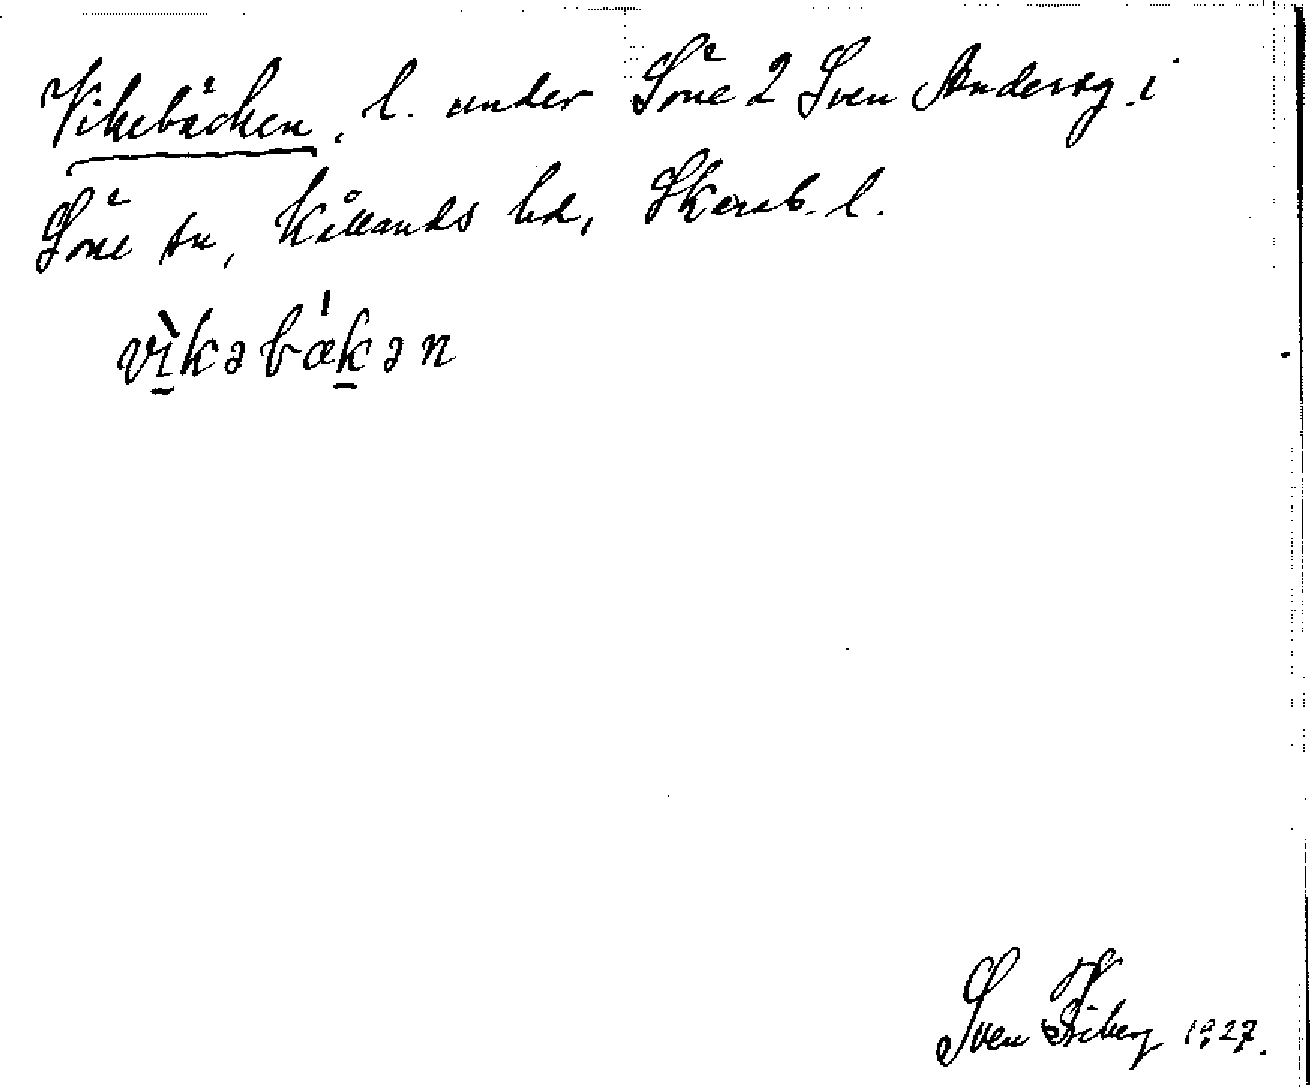 Vikebäcken, l. under Söne 2 Sven Andersg. i
Söne sn, Kållands hd, Skarab. l.
vìkəbækən
Sven Fiberg 1927.